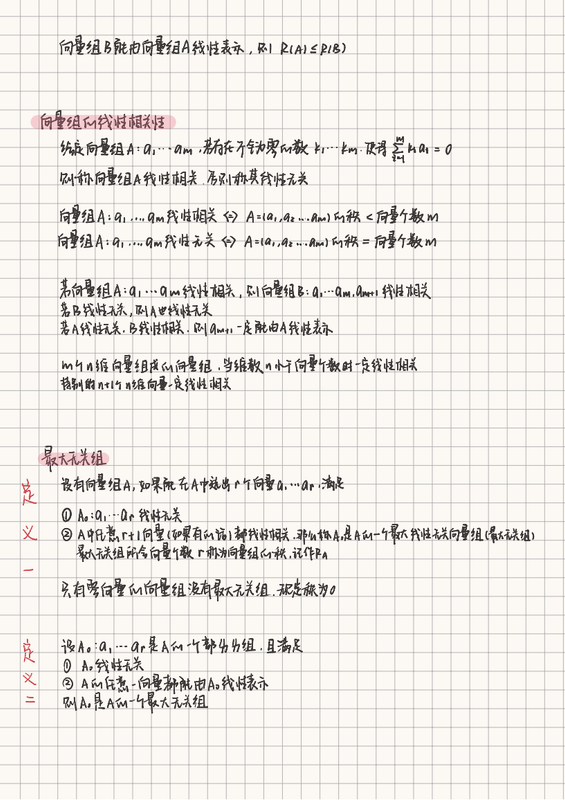 向量组B能由向量组A线性表示，则 R(A)≤R(B)
向量组的线性相关性
给定向量组A：a₁…am，若存在不全为零的数 k₁…km，使得 ∑ᵢ₌₁ᵐ kᵢaᵢ = 0
则称向量组A线性相关，否则称其线性无关
向量组A：a₁,…,am线性相关 <=> A=(a₁,a₂…am)的秩 < 向量个数m
向量组A：a₁,…,am线性无关 <=> A=(a₁,a₂…am)的秩 = 向量个数m
若向量组A：a₁…am线性相关，则向量组B：a₁…am,am+1线性相关
若B线性无关，则A也线性无关
若A线性无关，B线性相关，则am+1一定能由A线性表示
m个n维向量组成的向量组，当维数n小于向量个数时一定线性相关
特别的n+1个n维向量一定线性相关
最大无关组
定义一
设有向量组A，如果能在A中选出r个向量a₁,…ar，满足
① A₀：a₁…ar线性无关
② A中任意r+1向量(如果有的话)都线性相关，那么称A₀是A的一个最大线性无关向量组(最大无关组)
最大无关组所含向量个数r称为向量组的秩，记作RA
只有零向量的向量组没有最大无关组，规定秩为0
定义二
设A₀：a₁…ar是A的一个部分分组，且满足
① A₀线性无关
② A的任意一向量都能由A₀线性表示
则A₀是A的一个最大无关组